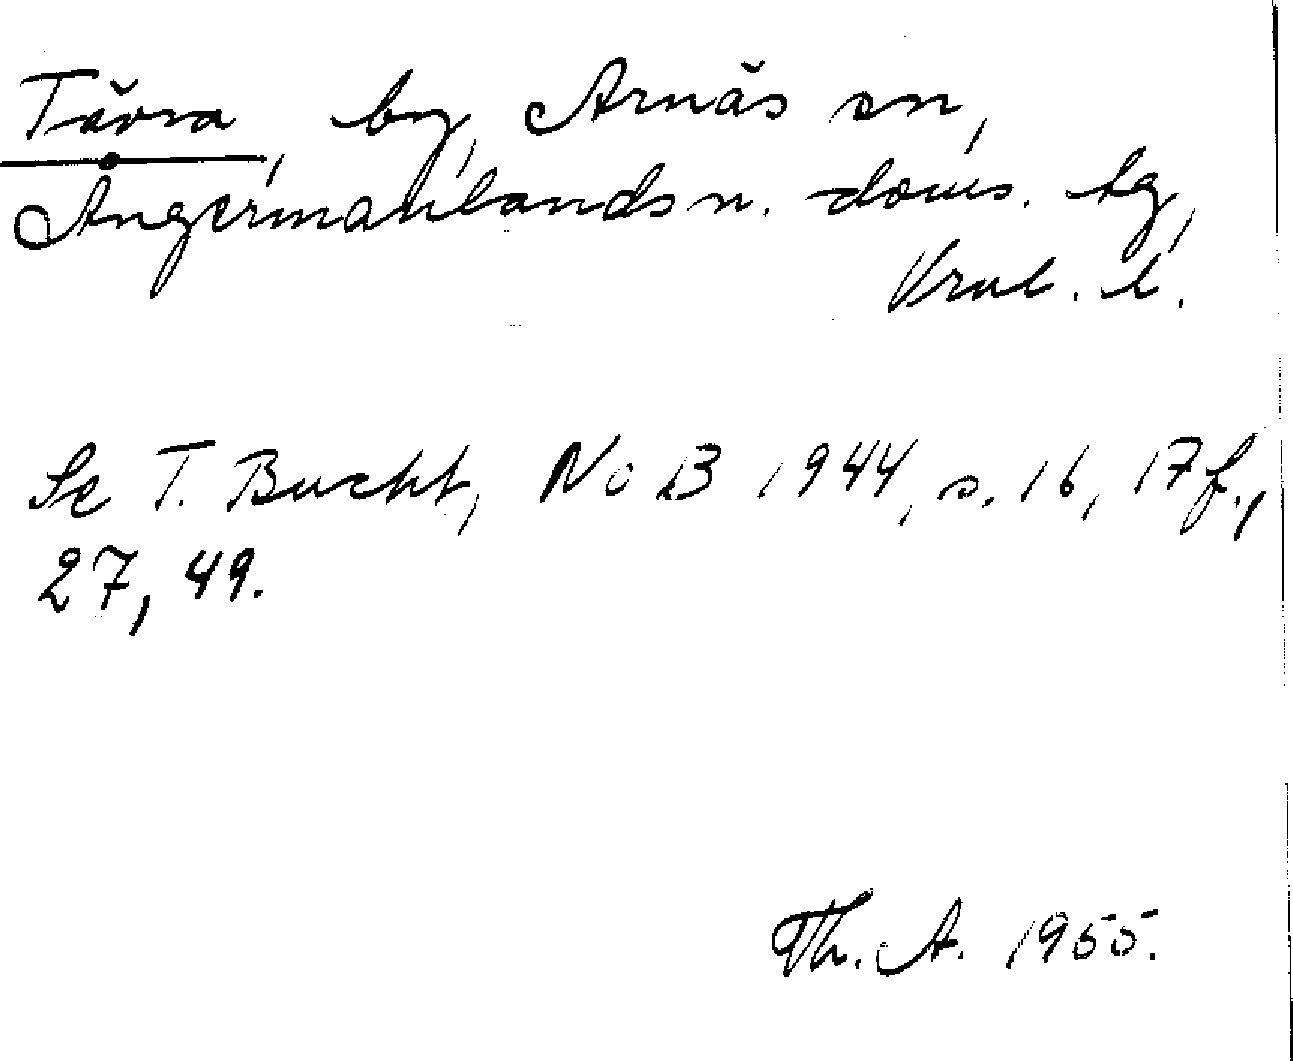 Tävra, by, Arnäs sn,
Angermanlands n. doms. tg,
Vrnl. l.
Se T. Bucht, NoB 1944, s. 16, 17 f.,
27, 49.
Th. A. 1955.